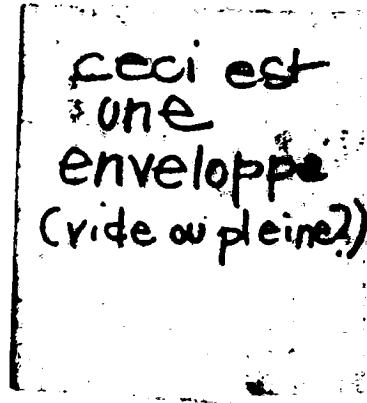 ceci est
une
enveloppe
(vide ou pleine?)